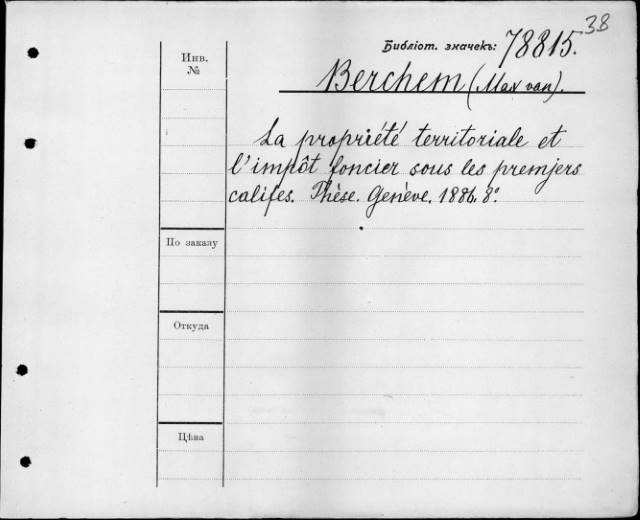 38
Библіот. значекъ: 78815.
Инв.
№
Berchem (Max van).
La propriété territoriale et
l'impôt foncier sous les premiers
califes. Thèse. Genève. 1886. 8º.
По заказу
Откуда
Цѣна